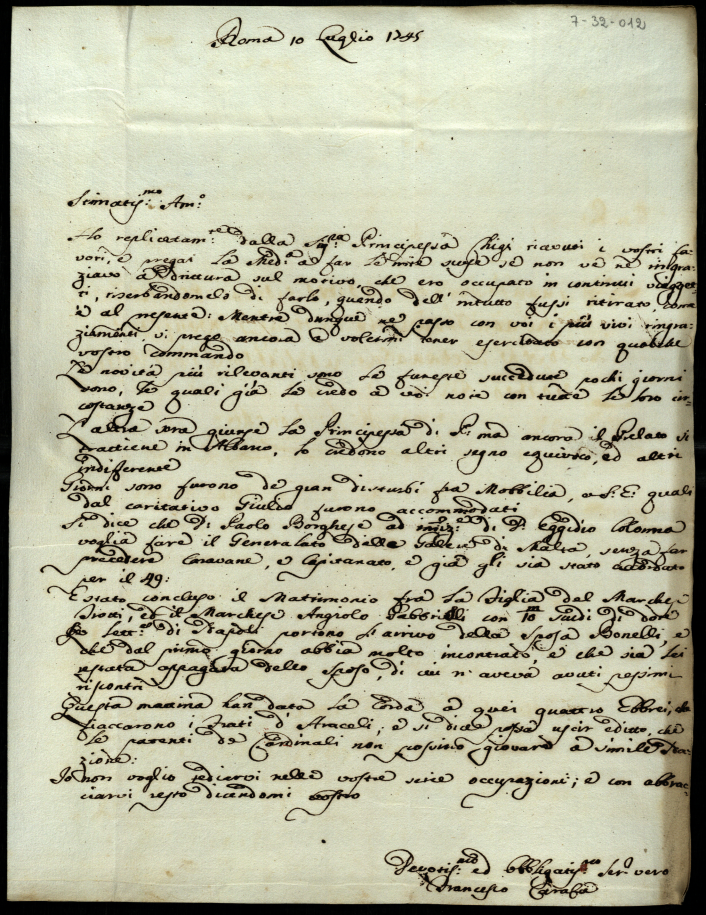 7-32-012
Roma 10 Luglio 1745
Stimatis:mo Am:o
Ho replicatam:te dalla Sig:ra Principessa Chigi ricevuti i vostri fa-
vori, e pregai la Med:a a far le mie scuse se non ve ne ringra-
ziavo a drittura sul motivo, che ero occupato in continui viagget-
ti, riserbandomelo di farlo, quando dell'intutto fussi ritirato, come
è al presente: Mentre dunque ne passo con voi i più vivi ringra-
ziamenti, vi prego ancora a volermi tener esercitato con qualche
vostro commando
Le novità più rilevanti sono le funeste succedute pochi giorni
sono, le quali già le credo a voi note con tutte le loro cir-
costanze
L'altra sera giunse la Principessa di ma ancora il Prelato si
trattiene in Albano, lo credono altri segno equivoco, ed altri
indifferente
Giorni sono furono de gran disturbi fra Mobbilia, e S: E: quali
dal caritativo Giulio furono accommodati
Si dice che D: Paolo Borghese ad di D: Eggidio Colonna
voglia fare il Generalato delle Galere di Malta, senza far
precedere Caravane, e Capitanato, e già gli sia stato accordato
per il 49:
È stato concluso il Matrimonio fra la Figlia del Marchese
Trotti, ed il Marchese Angiolo Gabbrielli con 10 scudi di dote
Le Lett:e di Napoli portono l'arrivo della Sposa Bonelli, e
che dal primo giorno abbia molto incontrato, e che sia lei
restata appagata dello Sposo, di cui n'aveva avuti pessimi
riscontri
Questa mattina han data la Corda a quei quattro Ebbrei, che
fiaccarono i Frati d'Araceli, e si dice possa uscir editto, che
le patenti de Cardinali non possino giovare a simile Na-
zione:
Io non voglio tediarvi nelle vostre serie occupazioni; e con abbrac-
ciarvi resto dicendomi vostro
Devotis:mo ed obbligatis:mo Ser:e vero
Francesco Carafa